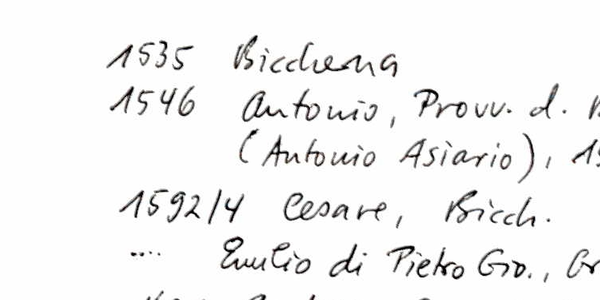 1535 Biccherna
1546 Antonio, Provv. d.
(Antonio Asiario),
1592/4 Cesare, Bicch.
.... Emilio di Pietro Gio.,